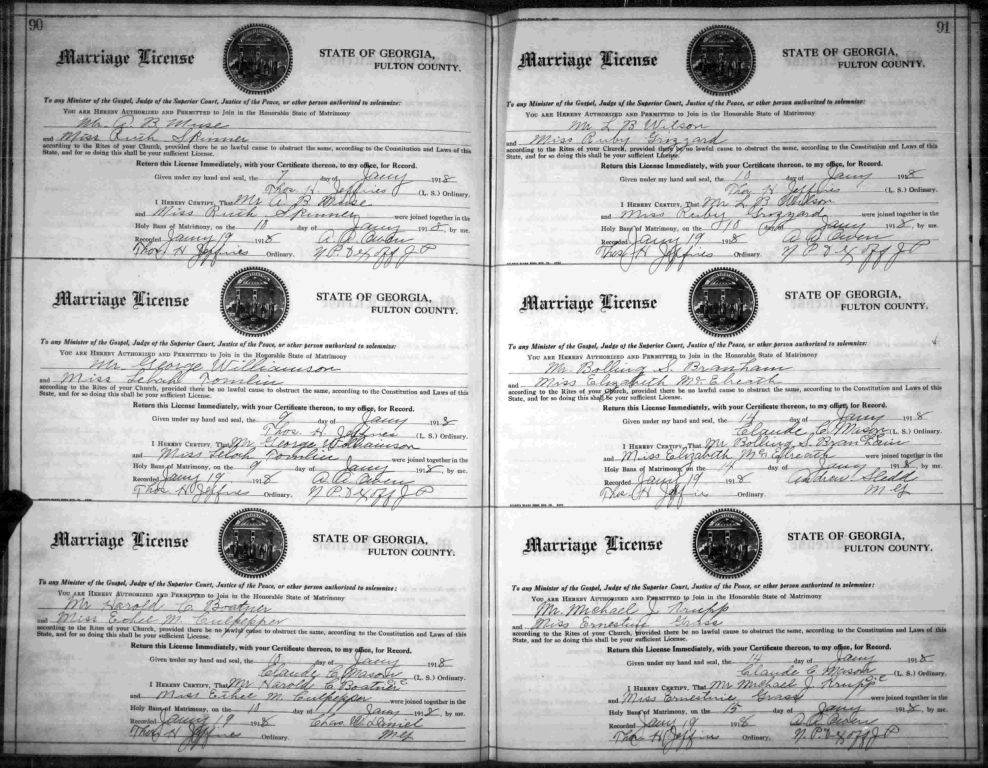 90
Marriage License
STATE OF GEORGIA,
FULTON COUNTY.
To any Minister of the Gospel, Judge of the Superior Court, Justice of the Peace, or other person authorized to solemnize:
YOU ARE HEREBY AUTHORIZED AND PERMITTED to Join in the Honorable State of Matrimony
Mr. A. B. Muse
and Miss Ruth Skinner
according to the Rites of your Church, provided there be no lawful cause to obstruct the same, according to the Constitution and Laws of this
State, and for so doing this shall be your sufficient License.
Return this License Immediately, with your Certificate thereon, to my office, for Record.
Given under my hand and seal, the 7 day of Jany 1918
Thos. H. Jeffries (L. S.) Ordinary.
I HEREBY CERTIFY, That Mr A B Muse
and Miss Ruth Skinner were joined together in the
Holy Bans of Matrimony, on the 10 day of Jany 1918, by me.
Recorded Jany 19 1918 A. A. Owen
Thos H Jeffries Ordinary. N. P. & Ex off J P
Marriage License
STATE OF GEORGIA,
FULTON COUNTY.
To any Minister of the Gospel, Judge of the Superior Court, Justice of the Peace, or other person authorized to solemnize:
YOU ARE HEREBY AUTHORIZED AND PERMITTED to Join in the Honorable State of Matrimony
Mr. George Williamson
and Miss Tomlin
according to the Rites of your Church, provided there be no lawful cause to obstruct the same, according to the Constitution and Laws of this
State, and for so doing this shall be your sufficient License.
Return this License Immediately, with your Certificate thereon, to my office, for Record.
Given under my hand and seal, the 9 day of Jany 1918
Thos. H. Jeffries (L. S.) Ordinary.
I HEREBY CERTIFY, That Mr George Williamson
and Miss Tomlin were joined together in the
Holy Bans of Matrimony, on the 9 day of Jany 1918, by me.
Recorded Jany 19 1918 A. A. Owen
Thos H Jeffries Ordinary. N. P. & Ex off J P
Marriage License
STATE OF GEORGIA,
FULTON COUNTY.
To any Minister of the Gospel, Judge of the Superior Court, Justice of the Peace, or other person authorized to solemnize:
YOU ARE HEREBY AUTHORIZED AND PERMITTED to Join in the Honorable State of Matrimony
Mr Harold C. Boatner
and Miss Ethel M. Culpepper
according to the Rites of your Church, provided there be no lawful cause to obstruct the same, according to the Constitution and Laws of this
State, and for so doing this shall be your sufficient License.
Return this License Immediately, with your Certificate thereon, to my office, for Record.
Given under my hand and seal, the day of Jany 1918
Claude C. Mason (L. S.) Ordinary.
I HEREBY CERTIFY, That Mr Harold C Boatner
and Miss Ethel M. Culpepper were joined together in the
Holy Bans of Matrimony, on the 10 day of Jany 1918, by me.
Recorded Jany 19 1918 Chas. W. Daniel
Thos H Jeffries Ordinary. M. G.
91
Marriage License
STATE OF GEORGIA,
FULTON COUNTY.
To any Minister of the Gospel, Judge of the Superior Court, Justice of the Peace, or other person authorized to solemnize:
YOU ARE HEREBY AUTHORIZED AND PERMITTED to Join in the Honorable State of Matrimony
Mr L B Wilson
and Miss Ruby Grozzard
according to the Rites of your Church, provided there be no lawful cause to obstruct the same, according to the Constitution and Laws of this
State, and for so doing this shall be your sufficient License.
Return this License Immediately, with your Certificate thereon, to my office, for Record.
Given under my hand and seal, the 10 day of Jany 1918
Thos H Jeffries (L. S.) Ordinary.
I HEREBY CERTIFY, That Mr L B Wilson
and Miss Ruby Grozzard were joined together in the
Holy Bans of Matrimony, on the 10 day of Jany 1918, by me.
Recorded Jany 19 1918 A. A. Owen
Thos H Jeffries Ordinary. N. P. & Ex off J P
Marriage License
STATE OF GEORGIA,
FULTON COUNTY.
To any Minister of the Gospel, Judge of the Superior Court, Justice of the Peace, or other person authorized to solemnize:
YOU ARE HEREBY AUTHORIZED AND PERMITTED to Join in the Honorable State of Matrimony
Mr Bolling S. Branham
and Miss Elizabeth McElreath
according to the Rites of your Church, provided there be no lawful cause to obstruct the same, according to the Constitution and Laws of this
State, and for so doing this shall be your sufficient License.
Return this License Immediately, with your Certificate thereon, to my office, for Record.
Given under my hand and seal, the 14 day of Jany 1918
Claude C. Mason (L. S.) Ordinary.
I HEREBY CERTIFY, That Mr Bolling S. Branham
and Miss Elizabeth McElreath were joined together in the
Holy Bans of Matrimony, on the 14 day of Jany 1918, by me.
Recorded Jany 19 1918 Andrew Sledd
Thos H Jeffries Ordinary. M. G.
Marriage License
STATE OF GEORGIA,
FULTON COUNTY.
To any Minister of the Gospel, Judge of the Superior Court, Justice of the Peace, or other person authorized to solemnize:
YOU ARE HEREBY AUTHORIZED AND PERMITTED to Join in the Honorable State of Matrimony
Mr. Michael J. Krupp
and Miss Ernestine Grass
according to the Rites of your Church, provided there be no lawful cause to obstruct the same, according to the Constitution and Laws of this
State, and for so doing this shall be your sufficient License.
Return this License Immediately, with your Certificate thereon, to my office, for Record.
Given under my hand and seal, the 14 day of Jany 1918
Claude C Mason (L. S.) Ordinary.
I HEREBY CERTIFY, That Mr Michael J. Krupp
and Miss Ernestine Grass were joined together in the
Holy Bans of Matrimony, on the 15 day of Jany 1918, by me.
Recorded Jany 19 1918 A. A. Owen
Thos H Jeffries Ordinary. N. P. & Ex off J P